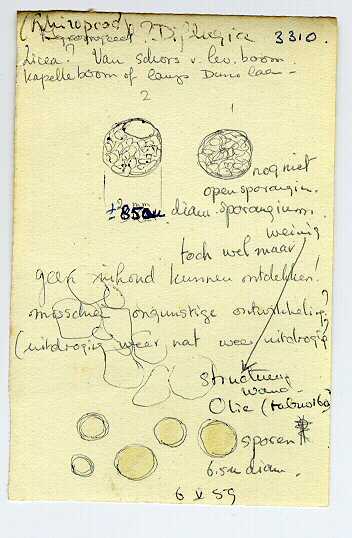 (Rhizopood? ? Difflugia 3310.
Licea? Van schors v. lev. boom.
Kapelleboom of langs Dan laan
2
1
nog niet
open sporangin.
± 850 u diam. sporangium.
weinig
toch wel maar
geen inhoud kunnen ontdekken!
misschien ongunstige ontwikkeling?
(uitdroging weer nat weer uitdroging
structuur
wand
Olie
sporen
6.5u diam.
6 V 59